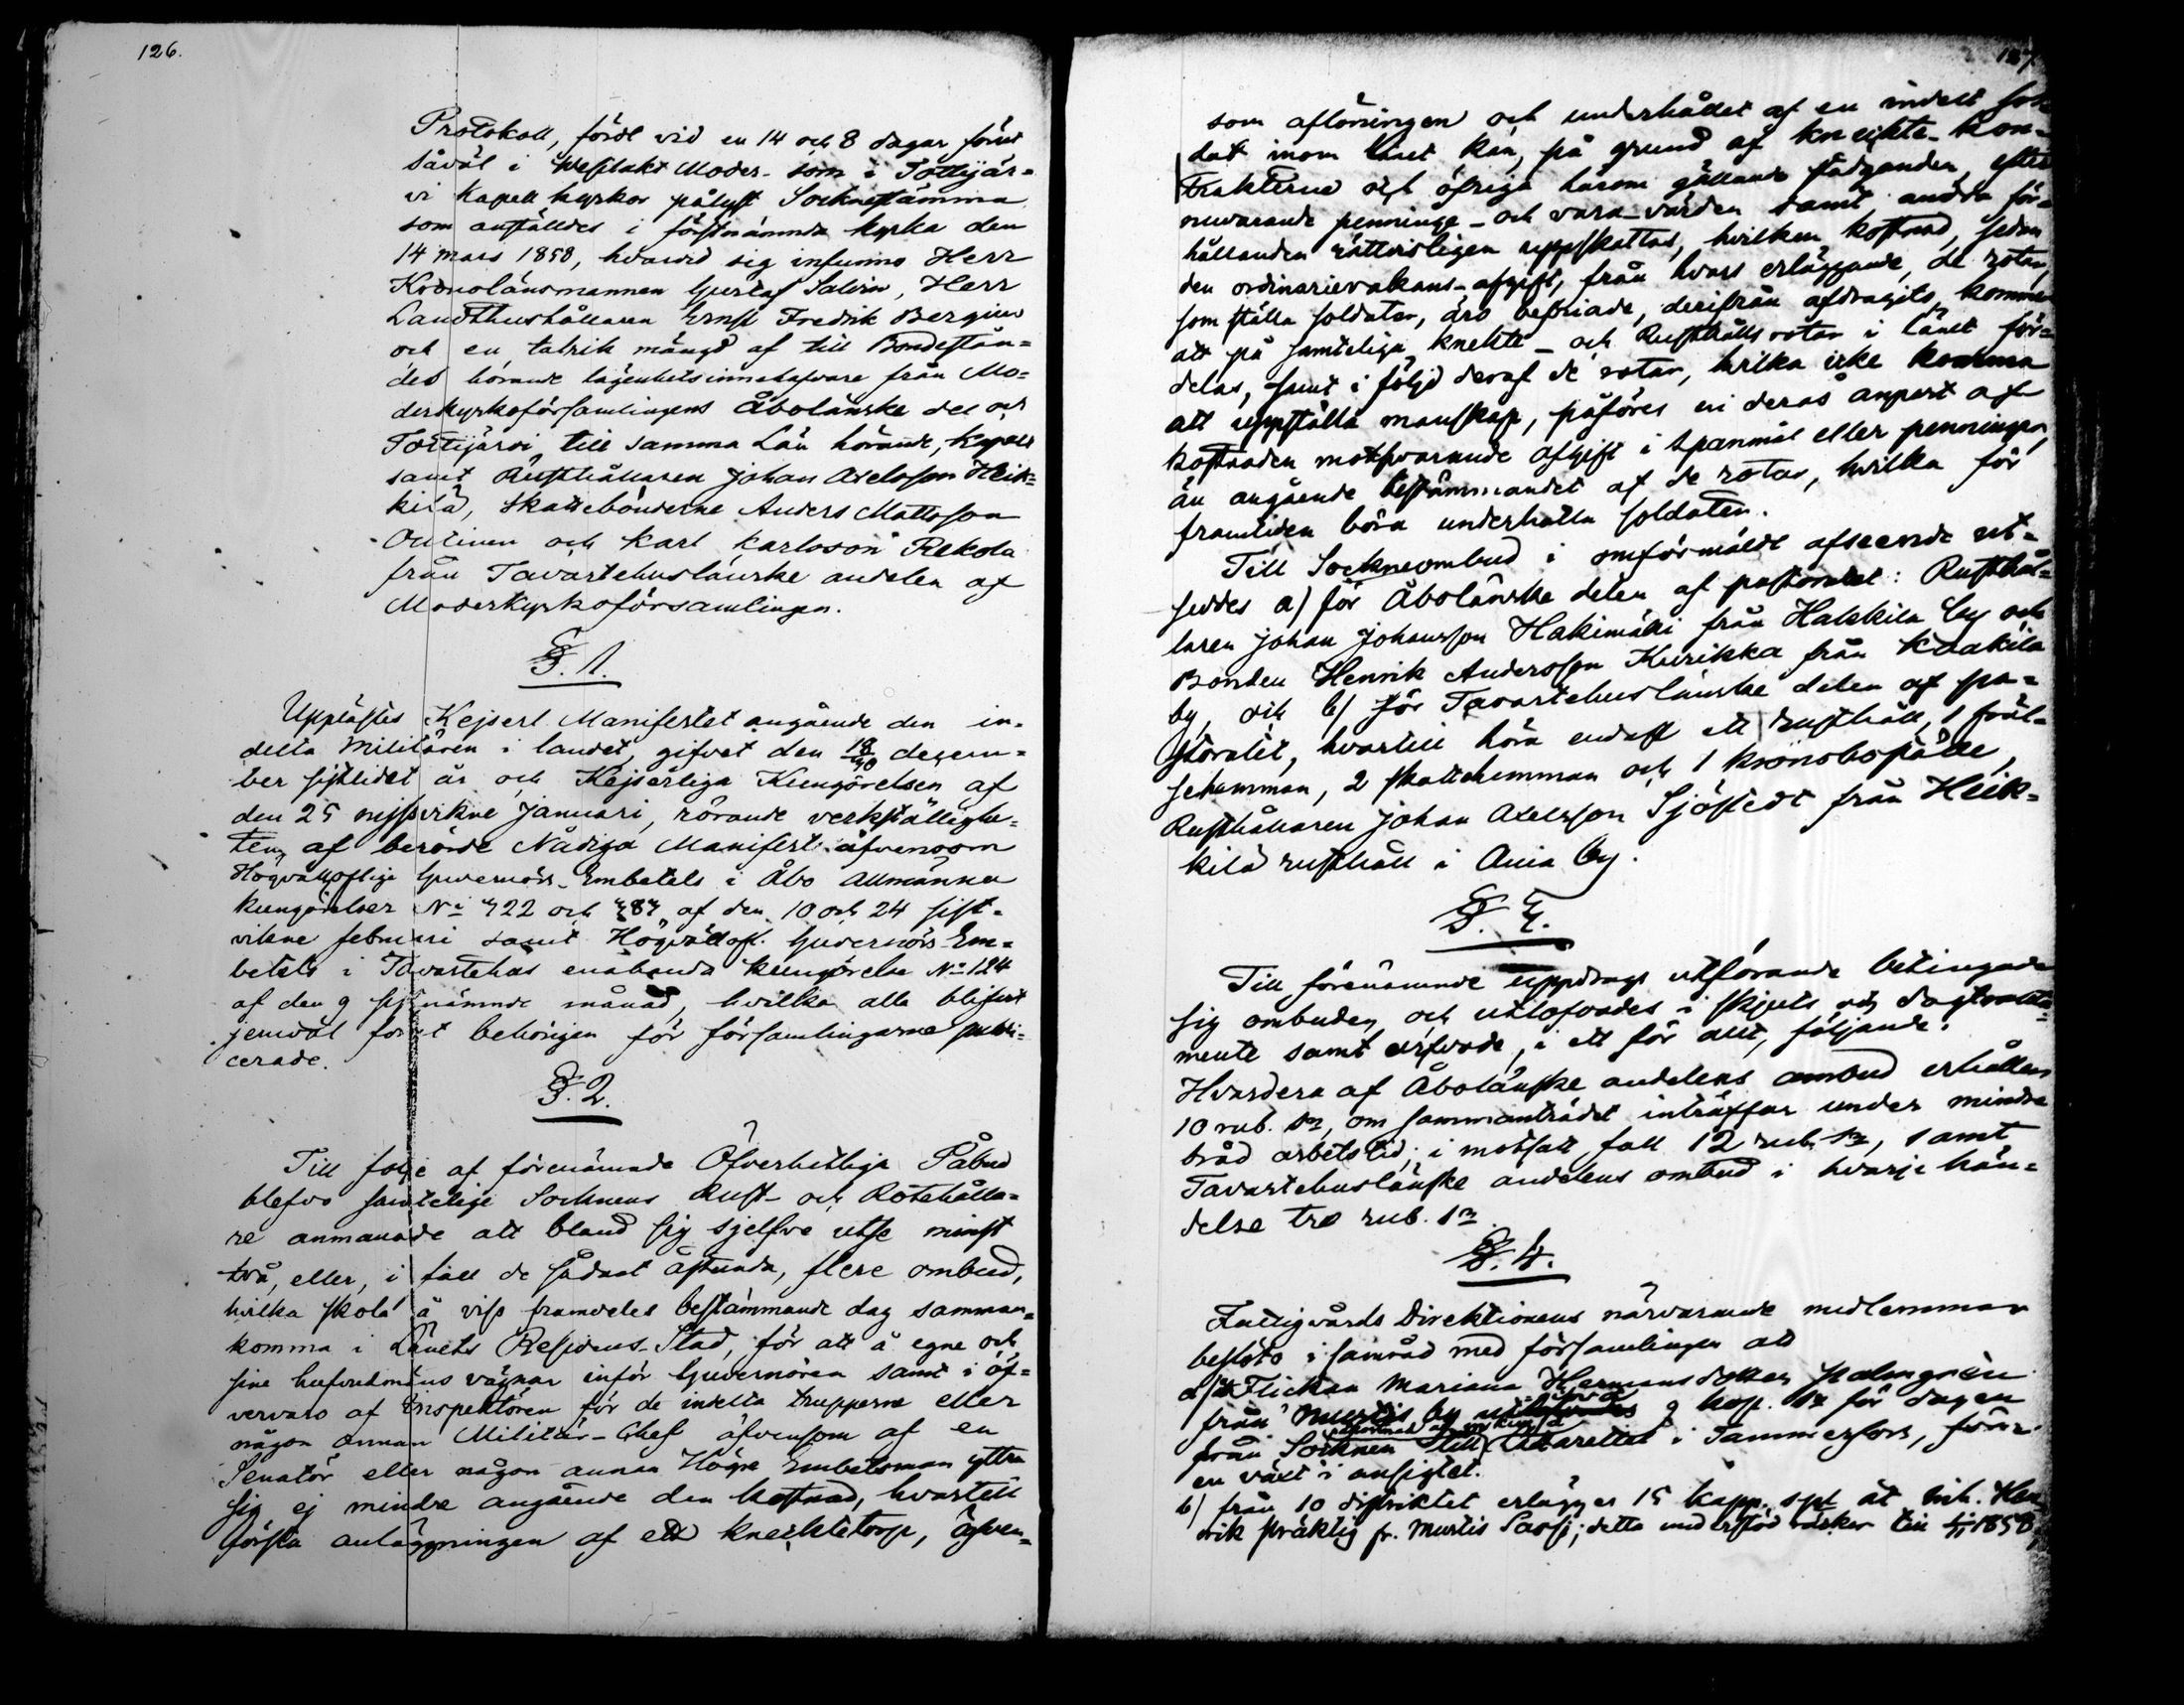 126.
Protokoll, fördt vid en 14 och 8 dagar förut
såväl i Wesilaks Moder- som i Tottijär=
vi Kapell kyrkor pålyst Sockne stämma
som anställdes i förstnämnda kyrka den
14 mars 1858, hvarvid sig infunno Herr
Kronolänsmannen Gustaf Salvin, Herr
Landthushållaren Ernst Fredrik Bergius
och en talrik mängd af till Bondestån=
det hörande lägenhetsinnehafvare från Mo=
derkyrkoförsamlingens Åbolänske del och
Tottijärvi, till samma Län hörande, kapell
samt Rusthållaren Johan Axelsson Heik=
kilä, skattebönderne Anders Mattsson
Outinen och Karl Karlsson Rekola
från Tavastehuslänske andelen af
Moderkyrkoförsamlingen.
§. 1.
Upplästes Kejserl. Manifestet angående den in=
delta Militären i landet, gifvet den 18/30 decem=
ber sistlidet år och Kejserliga Kungörelsen af
den 25 nyssvikne Januari, rörande verkställighe=
ten af berörde Nådiga Manifest äfvensom
Högvälloflige Guvernörs-Embetets i Åbo Allmänna
kungörelser No 322 och 383 af den 10 och 24 sist=
vikne februari samt Högvällofl. Guvernörs-Em=
betets i Tavastehus enahanda kungörelse No 124
af den 9 sistnämnde månad, hvilka alla blifvit
jemväl förut behörigen för församlingarne publi=
cerade.
§. 2.
Till följe af förenämnde Öfverhetliga Påbud
blefvo samtelige Socknens Rust- och Rotehålla=
re anmanade att bland sig sjelfve utse minst
två, eller, i fall de sådant åstunda, flere ombud,
hvilka skola å viss framdeles bestämmande dag samman=
komma i Länets Residens-Stad, för att å egne och
sine hufvudmäns vägnar inför Guvernören samt i öf=
vervaro af Inspektören för de indelta trupperne eller
någon annan Militär-Chef äfvensom af en
Senatör eller någon annan Högre Embetsman yttra
sig ej mindre angående den kostnad, hvartill
första anläggningen af ett knecktetorp, äfven=
127.
som aflöningen och underhållet af en indelt sol=
dat inom länet kan, på grund af knecktekon=
trakterne och öfriga härom gällande stadganden, efter
nuvarande penninge- och varu-värden samt andra för=
hållanden rättvisligen uppskattas, hvilken kostnad, sedan
den ordinarievakans-afgift, från hvars erläggande de rotar,
som ställa soldater, äro befriade, derifrån afdragits, kommer
att på samteliga knekte- och Rusthållsrotar i länet för=
delas, samt i följd deraf de rotar, hvilka icke komma
att uppställa manskap, påföres en deras anpart af
kostnaden motsvarande afgift i spanmål eller penningar,
än angående bestämmandet af de rotar, hvilka för
framtiden böra underhålla soldaten.
Till Sockneombud i omförmäldt afseende ut=
seddes a) för Åbolänske delen af pastoratet: Rusthål=
laren Johan Johansson Hakimäki från Halkkila by och
Bonden Henrik Andersson Kurikka från Kaakila
by, och b) för Tavastehuslänske delen af pa=
storatet, hvartill höra endast ett rusthåll, 1 fräl=
sehemman, 2 skattehemman och 1 kronobostälde,
Rusthållaren Johan Axelsson Sjöstedt från Heik=
kilä rusthåll i Ania by.
§. 3.
Till förenämnde uppdrags utförande betingade
sig ombuden, och utlofvades i skjuts och dagtrakta=
mente samt arfvode, i ett för allt, följande:
Hvardera af Åbolänske andelens ombud erhåller
10 rub. sr, om sammanträdet inträffar under mindre
bråd arbetstid; i motsatt fall 12 rub. sr, samt
Tavastehuslänske andelens ombud i hvarje hän=
delse tre rub. sr.
§. 4.
Fattigvårds Direktionens närvarande medlemmar
beslöts i samråd med församlingen att
a) åt Flickan Mariana Hermansdotter Palmgrén
från Murtis by 9 kop. sr för dagen
från Socknen till Lazarettet i Tammerfors, för
en växt i ansigtet.
b) från 10 distriktet erlägges 15 kapp. spl åt Henrik
fr. Murtis Sassi; detta understöd räcker till 1/11 1858,